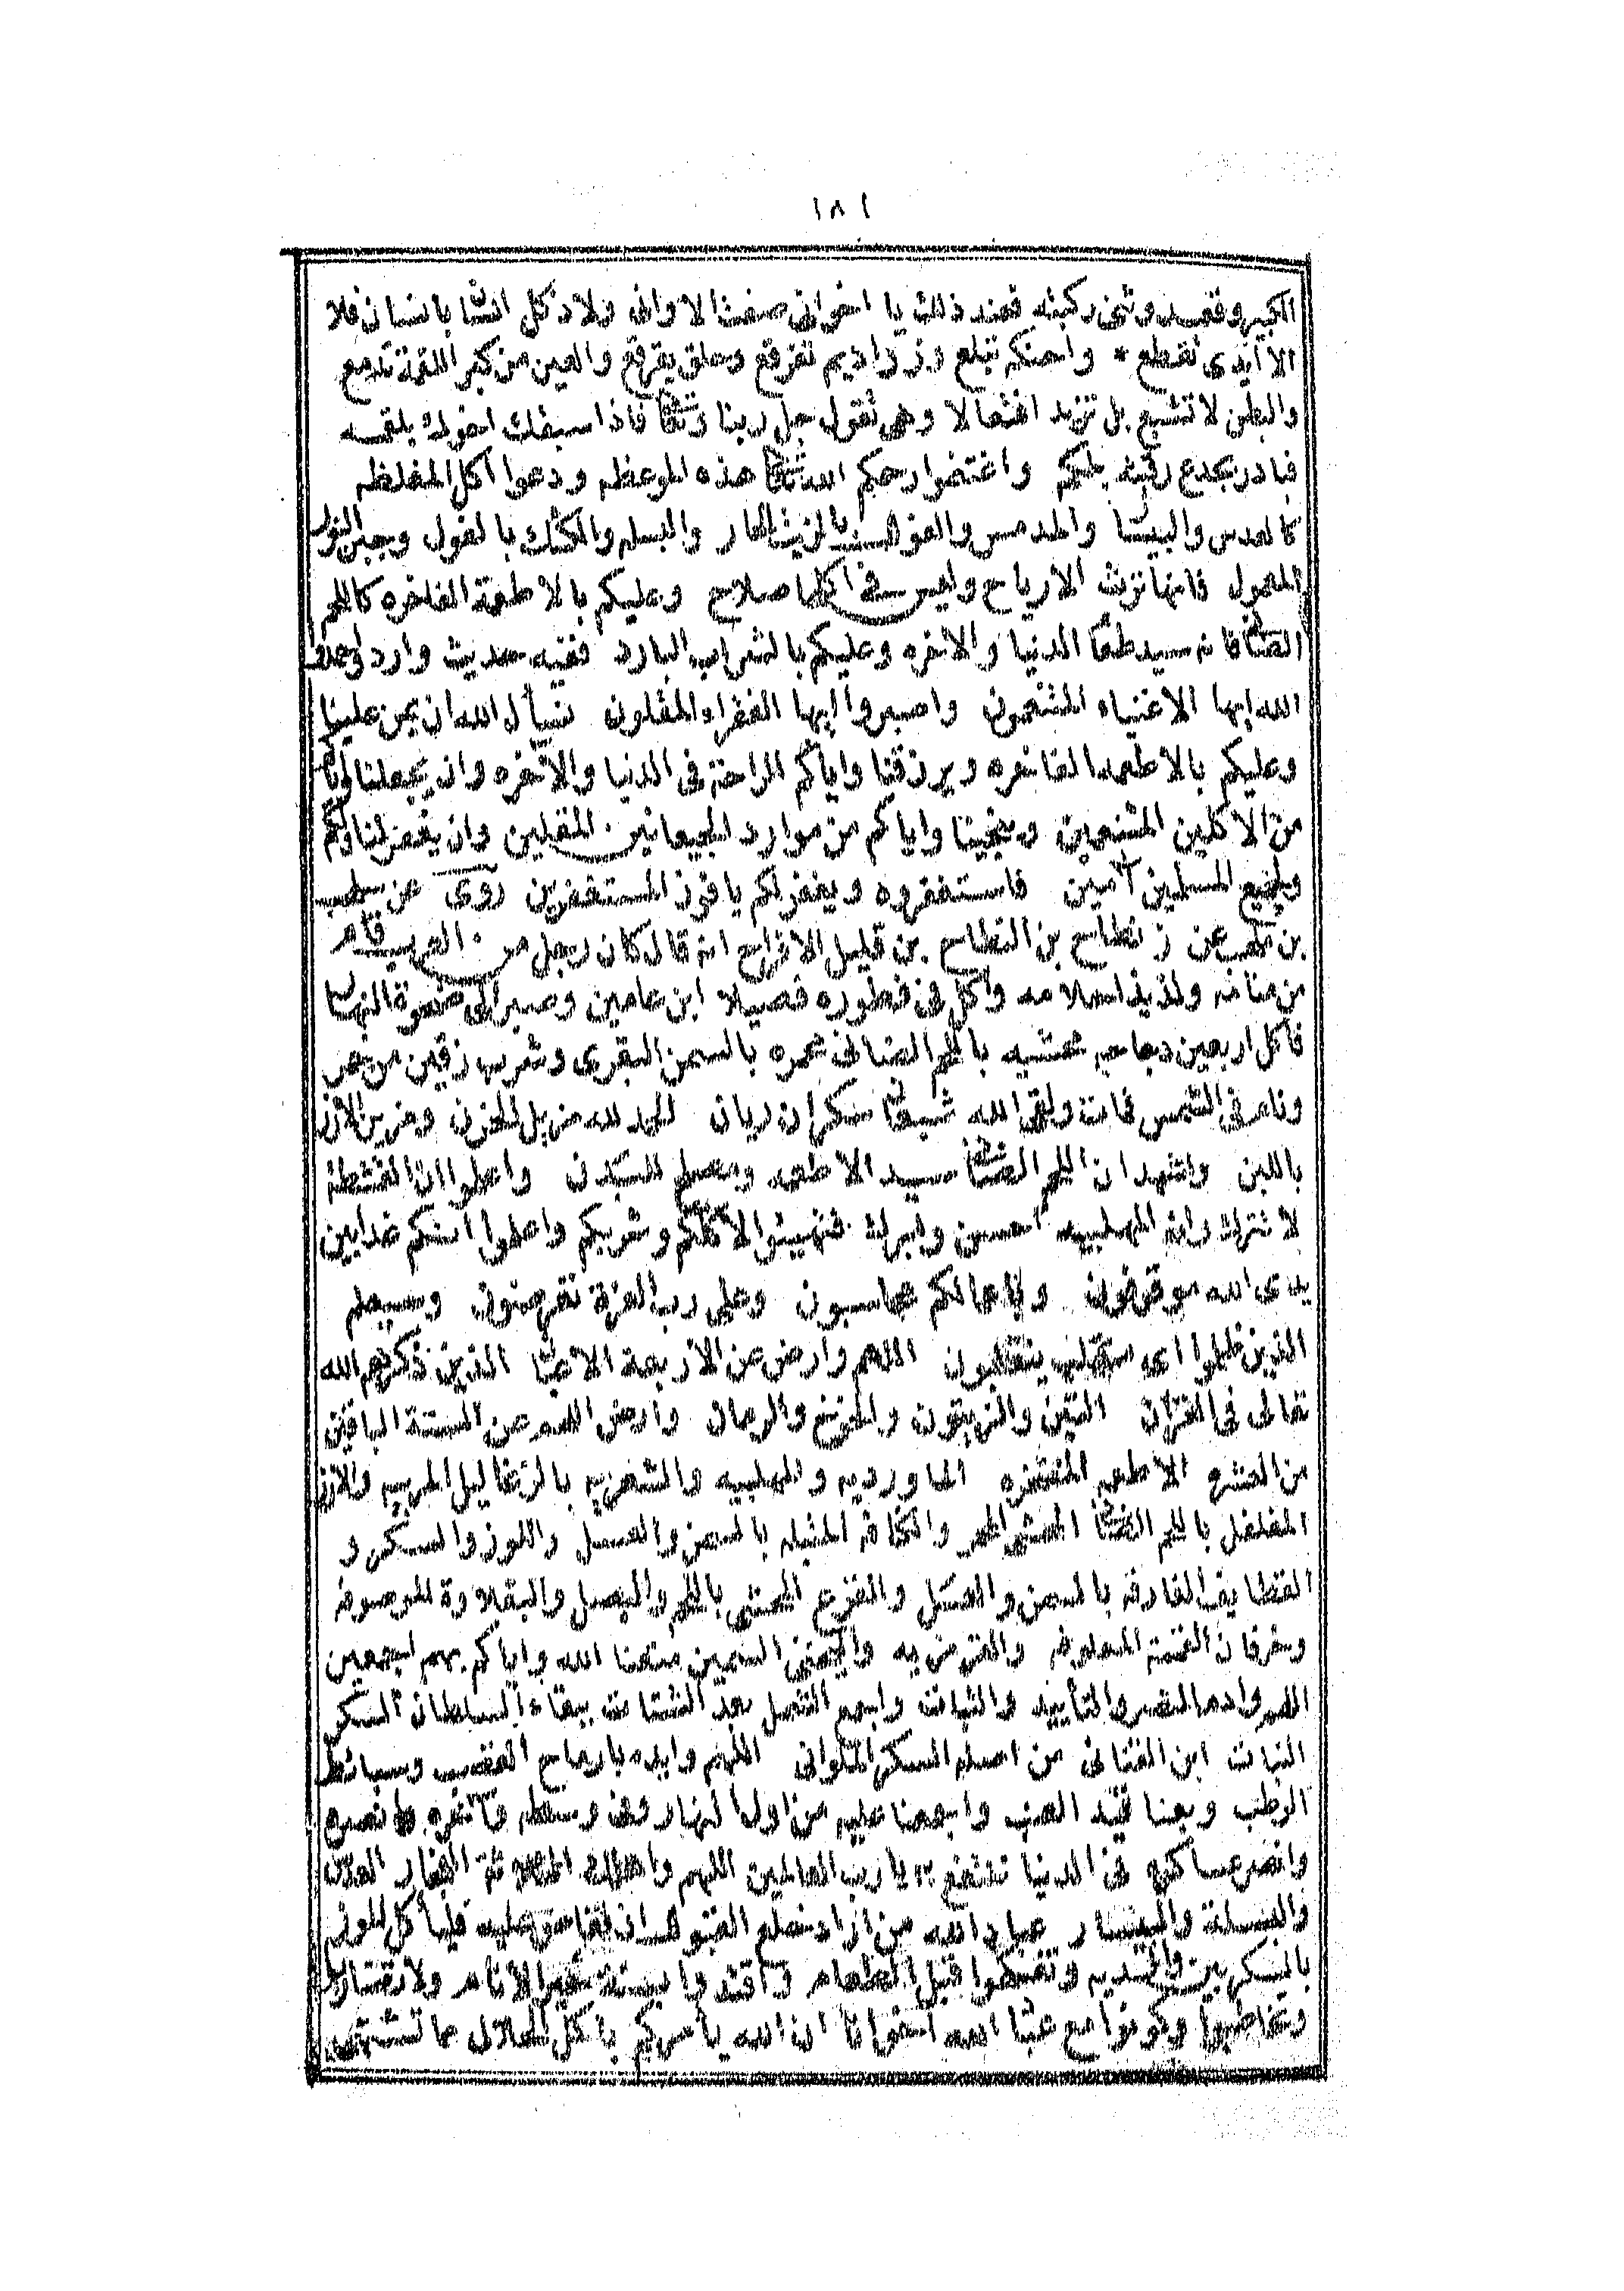 ١٨١
الكبير وقعد وثنى ركبته فعند ذلك يا اخوانى صفت الاوانى ولا دكل انسان بانسان فلا
الا ايدى تقطع * واحنكه تبلع وزراديم تفرقع وحلق يقرقع والعين من كبر اللقمة تدمع
والبطن لا تشبع بل تزيد افتعالا وهى تقول جل ربنا وتعالى فاذا سبقك اخوك بلقمه
فبادر بجدع رقبته بلكم واغتنموا رحمكم الله تعالى هذه الموعظه ودعوا اكل المغلظه
كالعدس والبيسار والمدمس والفول بالزيت الحار والبسله والكشك بالفول وجبن
المعمول فانها تورث الارياح وليس فى اكلها صلاح وعليكم بالاطعمة الفاخره كاللحم
الضانى فانه سيد طعام الدنيا والاخره وعليكم بالشراب البارد ففيه حديث وارد
الله ايها الاغنياء المتنعمون واصبروا ايها الفقراء المقلون نسأل الله ان يمن علينا
وعليكم بالاطعمه الفاخره ويرزقنا واياكم الراحة فى الدنيا والاخره وان يجعلنا واياكم
من الاكلين المتنعمين وينجينا واياكم من موارد الجيعانين المقلين وان يغفر لنا ولكم
ولجميع المسلمين آمين فاستغفروه ويغفر لكم يا فوز المستغفرين روى عن
بن عن نطاح بن النطاح بن قليل الافراح انه قال كان رجل من العرب قام
من منامه ولذيذ احلامه واكل فى فطوره فصيلا ابن عامين وصبر الى ضحوة النهار
فاكل اربعين دجاجه محشيه باللحم الضانى محمره بالسمن البقرى وشرب زقين من خمر
ونام فى الشمس فمات ولقى الله شبعان سكران ريان الحمد لله مزيل الحزن ومزين الارز
باللبن واشهد ان اللحم الضانى سيد الاطعمه ومصلح للبدن واعلموا ان القشطة
لا تترك وان المهلبيه احسن وابرك فتهيئوا لاكلكم وشربكم واعلموا انكم غدا بين
يدى الله موقوفون وباعمالكم محاسبون وعلى رب العزة تعرضون وسيعلم
الذين ظلموا اى منقلب ينقلبون اللهم وارض عن الاربعة الاعيان الذين ذكرتهم الله
تعالى فى القرآن التين والزيتون والخوخ والرمان وارض اللهم عن الستة الباقين
من العشرة الاطعمه المفتخره الماورديه والمهلبيه والشعريه بالزغاليل المربيه والارز
المفلفل باللحم الضانى المحمر والكنافه المتبله بالسمن والعسل واللوز والسكر و
القطايف الغارقه بالسمن والعسل والقرع المحشى باللحم والبصل والبقلاوة المرصوصه
وخرفان الفتة المعلوفه والقرمزيه والجبن السمين متعنا الله واياكم بهم اجمعين
اللهم وادم النصر والتأييد والثبات واجمع الشمل بعد الشتات ببقاء السلطان السكر
النبات ابن الفتانى من اصله السكر الحلوانى اللهم وايده بارماح القصب وسبائط
الرطب وبعنا قيد العنب واجمعنا عليه من اول النهار ومن وسطه وآخره
وانصر عساكره فى الدنيا تنتفع به يا رب العالمين اللهم واهلك الثلاثة الفجار العدس
والبسلة والبيسار عباد الله من اراد منكم الفتوحات فليأكل اللوز
بالسكر وتفسحوا قبل الطعام واقتدوا بسنة خير الانام ولا
وكونوا مع عباد الله اخوانا ان الله يأمركم باكل الحلال ما تشتهى